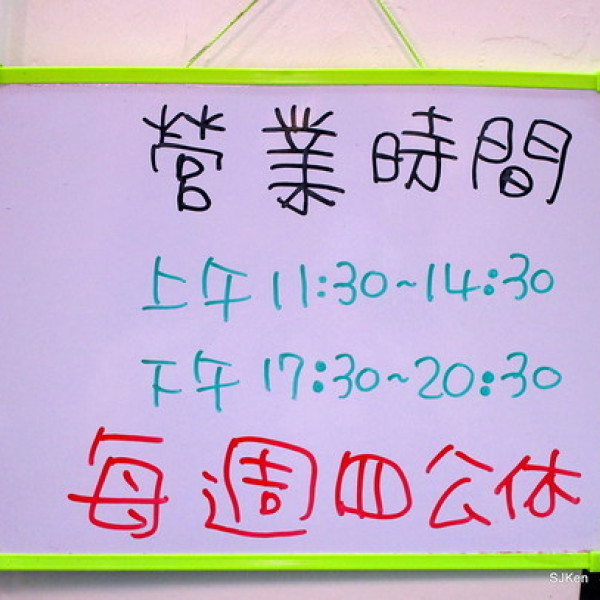 營業時間
上午11:30~14:30
下午17:30~20:30
每週四公休
SJKen